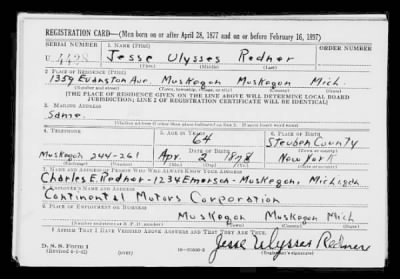 REGISTRATION CARD—(Men born on or after April 28, 1877 and on or before February 16, 1897)
SERIAL NUMBER 1. NAME (Print) ORDER NUMBER
U 4428 Jesse Ulysses Redner
(First) (Middle) (Last)
2. PLACE OF RESIDENCE (Print)
1359 Evanston Ave. Muskegon Muskegon Mich.
(Number and street) (Town, township, village, or city) (County) (State)
[THE PLACE OF RESIDENCE GIVEN ON THE LINE ABOVE WILL DETERMINE LOCAL BOARD
JURISDICTION; LINE 2 OF REGISTRATION CERTIFICATE WILL BE IDENTICAL]
3. MAILING ADDRESS
Same.
[Mailing address if other than place indicated on line 2. If same insert word same]
4. TELEPHONE 5. AGE IN YEARS 6. PLACE OF BIRTH
64 Steuben County
DATE OF BIRTH (Town or county)
Muskegon 244-261 Apr. 2 1878 New York
(Exchange) (Number) (Mo.) (Day) (Yr.) (State or country)
7. NAME AND ADDRESS OF PERSON WHO WILL ALWAYS KNOW YOUR ADDRESS
Charles E. Redner-1234 Emerson-Muskegon, Michigan
8. EMPLOYER'S NAME AND ADDRESS
Continental Motors Corporation
9. PLACE OF EMPLOYMENT OR BUSINESS
Muskegon Muskegon Mich
(Number and street or R. F. D. number) (Town) (County) (State)
I AFFIRM THAT I HAVE VERIFIED ABOVE ANSWERS AND THAT THEY ARE TRUE.
D. S. S. Form 1
(Revised 4-1-42) (over)
Jesse Ulysses Redner
(Registrant's signature)